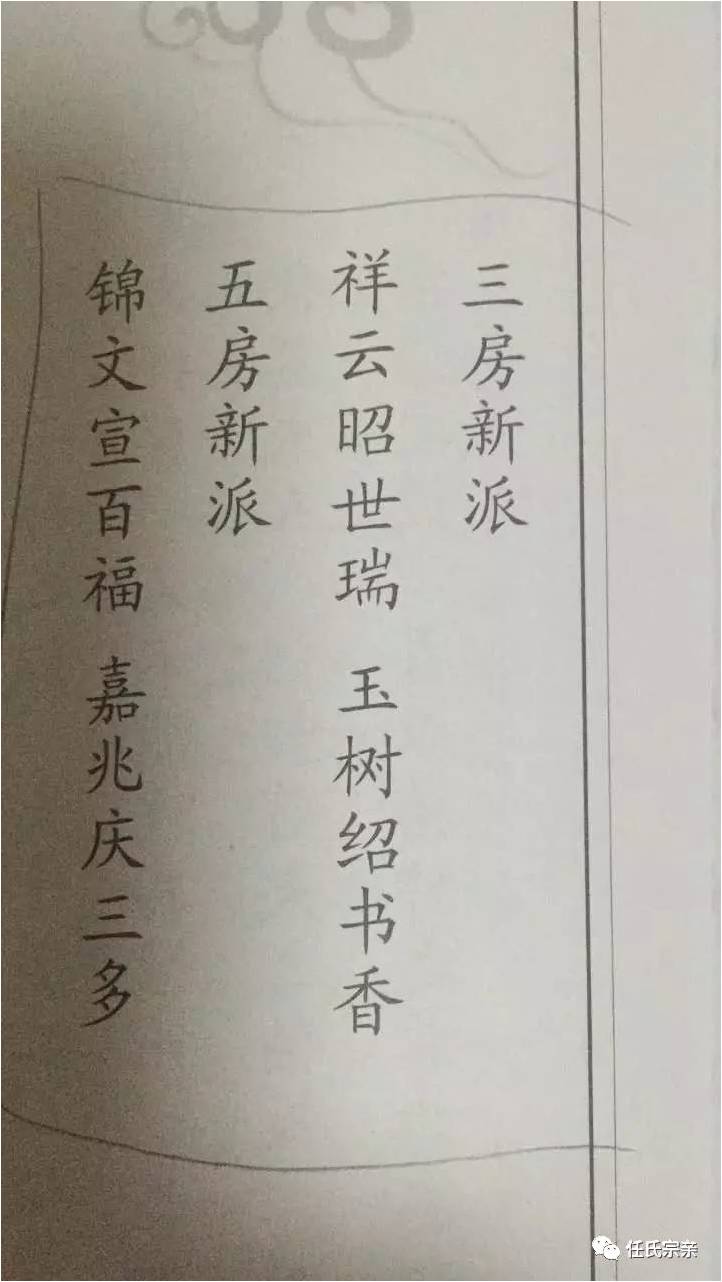 三房新派
祥云昭世瑞 玉树绍书香
五房新派
锦文宣百福 嘉兆庆三多
任氏宗亲